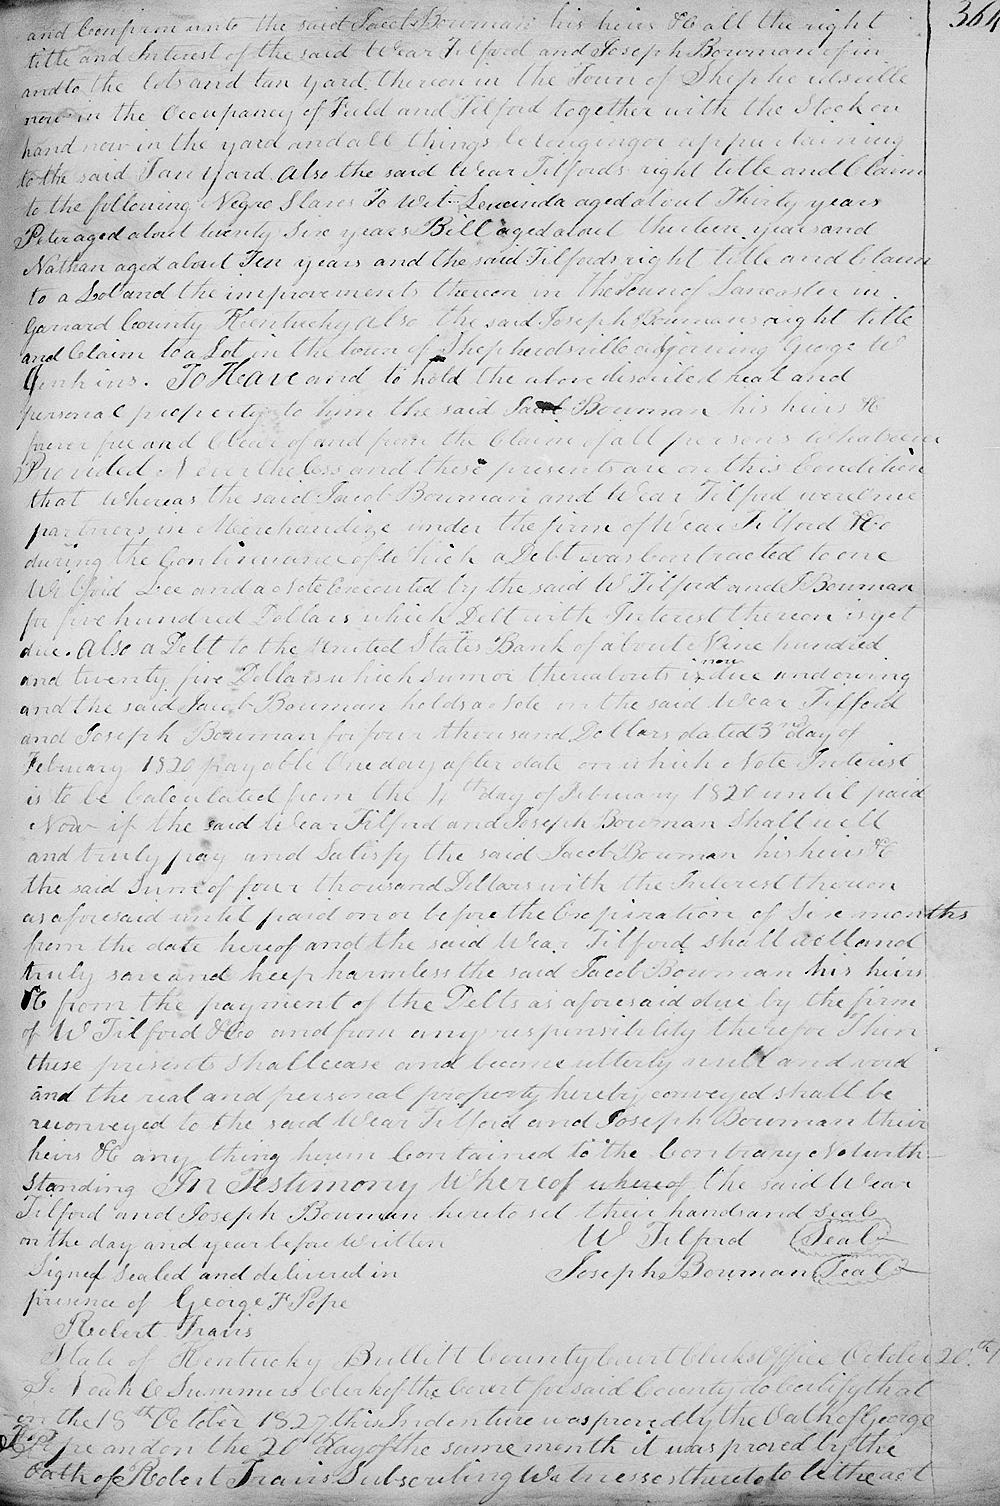 364
and Confirm unto the said Jacob Bowman his heirs &c all the right
title and Interest of the said Wear Tilford and Joseph Bowman of in
and to the lots and tan yard thereon in the Town of Shepherdsville
now in the Occupancy of Field and Tilford together with the Stock on
hand now in the yard and all things belonging or appurtaining
to the said Tan Yard Also the said Wear Tilfords right title and Claim
to the following Negro Slaves To Wit Lucinda aged about Thirty years
Peter aged about twenty Six years Bill aged about thirteen years and
Nathan aged about Ten years and the said Tilfords right title and Claim
to a Lot and the improvements thereon in the Town of Lancaster in
Garrard County Kentucky Also the said Joseph Bowmans right title
and Claim to a Lot in the town of Shepherdsville adjoining George W
Jenkins. To Have and to hold the above described real and
personal property to him the said Jacob Bowman his heirs &c
forever free and Clear of and from the Claim of all persons Whatever
Provided Nevertheless and these presents are on this Condition
that Whereas the said Jacob Bowman and Wear Tilford were once
partners in Merchandize under the firm of Wear Tilford &Co
during the Continuance of Which a Debt was Contracted to one
Wilford Lee and a Note Executed by the said W Tilford and J Bowman
for five hundred Dollars which Debt with Interest thereon is yet
due. Also a Debt to the United States Bank of about Nine hundred
and twenty five Dollars which Sum or thereabouts is now due and owing
and the said Jacob Bowman holds a Note on the said Wear Tilford
and Joseph Bowman for four thousand Dollars dated 3rd day of
February 1820 payable One day after date on which Note Interest
is to be Calculated from the 4th day of February 1820 until paid
Now if the said Wear Tilford and Joseph Bowman Shall well
and truly pay and Satisfy the said Jacob Bowman his heirs &c
the said Sum of four thousand Dollars with the Interest thereon
as aforesaid until paid on or before the Expiration of Six months
from the date hereof and the said Wear Tilford shall well and
truly save and keep harmless the said Jacob Bowman his heirs
&c from the payment of the Debts as aforesaid due by the firm
of W Tilford &Co and from any responsibility therefor Then
these presents shall cease and become utterly null and void
and the real and personal property hereby conveyed shall be
reconveyed to the said Wear Tilford and Joseph Bowman their
heirs &c any thing herein Contained to the Contrary Notwith
standing In Testimony Whereof whereof the said Wear
Tilford and Joseph Bowman hereto set their hands and seal
on the day and year before Written W Tilford Seal
Signed Sealed and delivered in Joseph Bowman Seal
presence of George F Pope
Robert Travis
State of Kentucky Bullitt County Court Clerks Office October 20th
I Noah C Summers Clerk of the Court for said County do Certify that
on the 18th October 1827 this Indenture was proved by the Oath of George
F Pope and on the 20th day of the same month it was proved by the
Oath of Robert Travis Subscribing Witnesses thereto to be the act